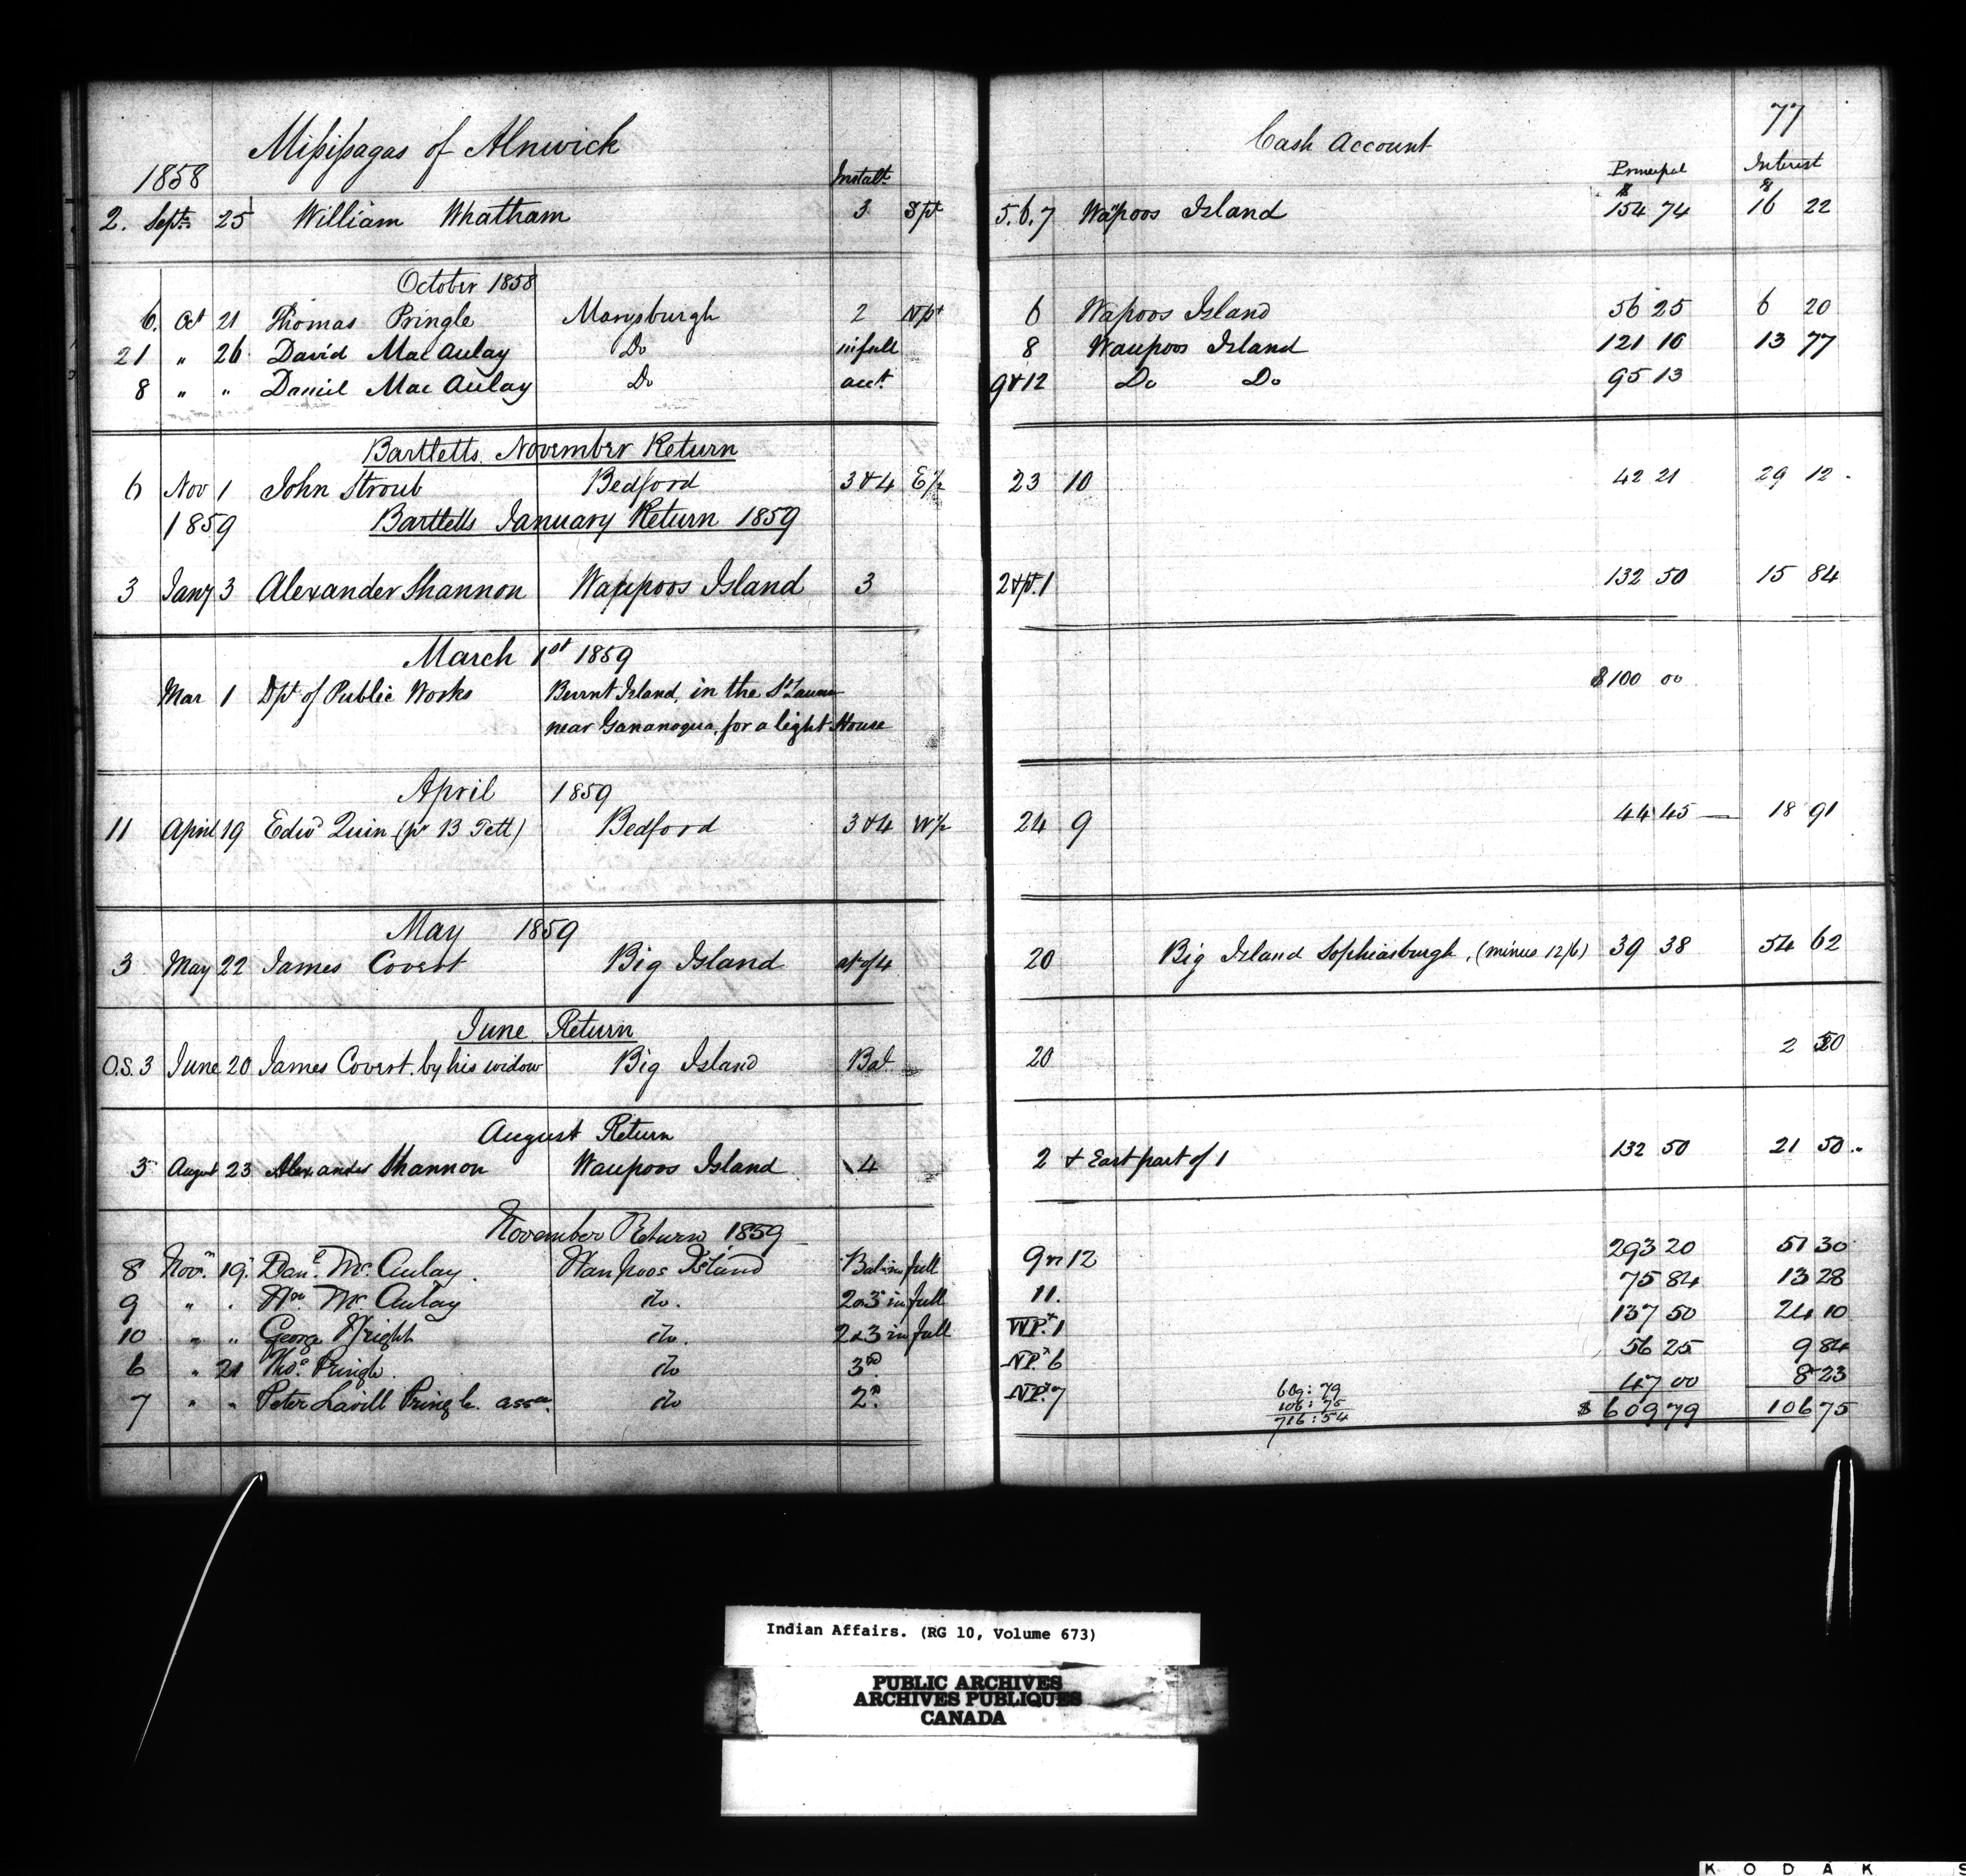 77
Missisagas of Alnwick Cash Account
1858 Instalt. Principal Interest
$ $
2. Septr. 25 William Whatham 3 Spt 5.6.7 Wapoos Island 154 74 16 22
October 1858
6. Oct 21 Thomas Pringle Marysburgh 2 Npt 6 Wapoos Island 56 25 6 20
21 " 26 David MacAulay Do in full 8 Waupoos Island 121 10 13 77
8 " " Daniel MacAulay Do acct. 9 & 12 Do Do 95 13
Bartletts November Return
6 Nov 1 John Stroub Bedford 3 & 4 E½ 23 10 42 21 29 12
1859 Bartletts January Return 1859
3 Jany 3 Alexander Shannon Wappoos Island 3 2 & pt. 1 132 50 15 84
March 1st 1859
Mar 1 Dpt of Public Works Burnt Island, in the St. $100 00
near Gananoqua, for a light House
April 1859
11 April 19 Edwd Quin (pr B Tett) Bedford 3 & 4 W½ 24 9 44 45 18 91
May 1859
3 May 22 James Covert Big Island at of 4 20 Big Island Sophiasburgh, (minus 12/6) 39 38 54 62
June Return
O.S. 3 June 20 James Covert. by his widow Big Island Bal 20 2 50
August Return
3 August 23 Alexander Shannon Waupoos Island 4 2 & East part of 1 132 50 21 50
November Return 1859
8 Novr. 19. Danl. McAulay. Waupoos Island Bal in full 9 & 12 293 20 51 30
9 " " Wm. McAulay do. 2 & 3 in full 11. 75 84 13 28
10 " " George Wright do. 2 & 3 in full WPt. 1 137 50 24 10
6 " 21 Thos. Pringle. do 3rd NPt. 6 56 25 9 84
7 " " Peter Lavill Pringle. assee. do 2d. NPt. 7 47 00 8 23
609:79
106:75
716:54
$ 609 79 106 75
Indian Affairs. (RG 10, Volume 673)
PUBLIC ARCHIVES
ARCHIVES PUBLIQUES
CANADA
KODAK S